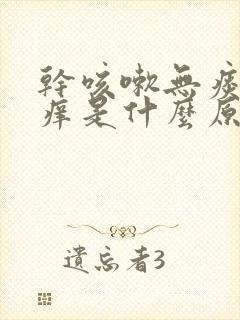 幹咳嗽無痰
痒是什麼原
遺忘者3